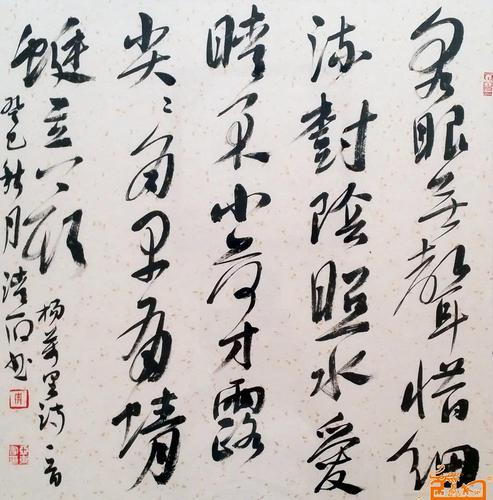 泉眼無聲惜細
流樹陰照水愛
晴柔小荷才露
尖〻角早有蜻
蜓立上頭 楊萬里詩一首
癸巳秋月